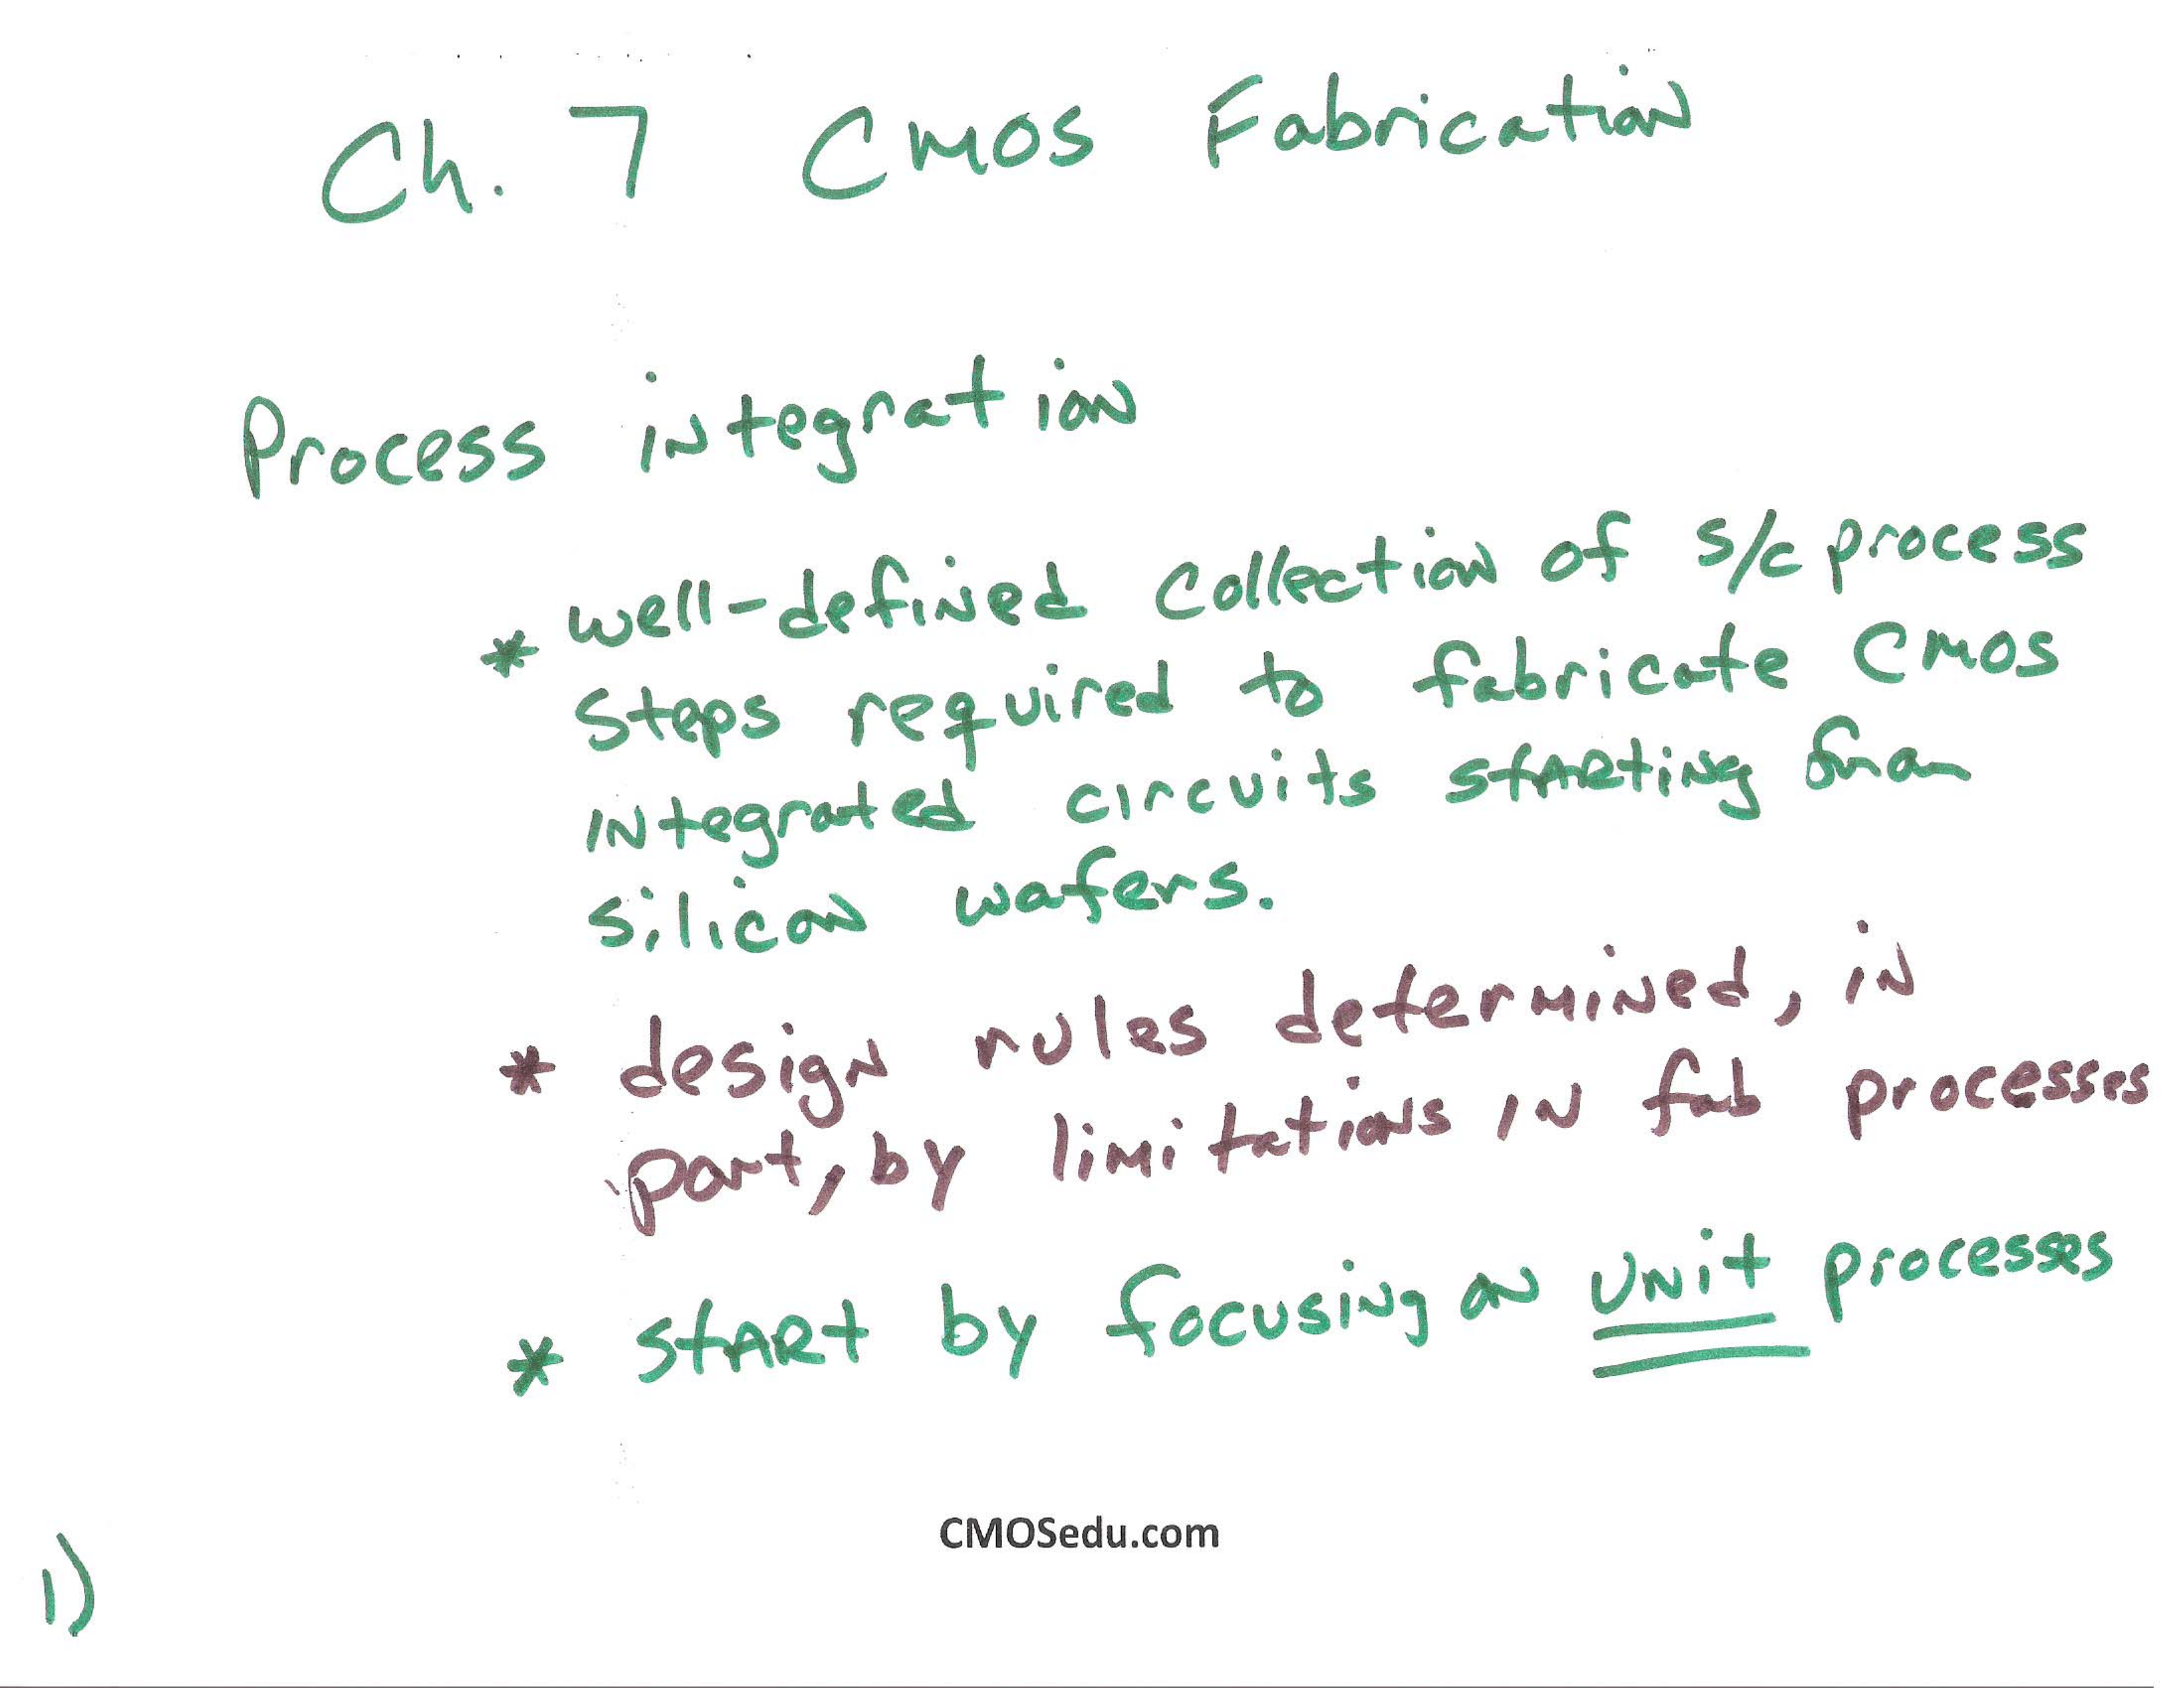 Ch. 7 CMOS Fabrication
Process integration
* well-defined collection of s/c process
steps required to fabricate CMOS
integrated circuits starting from
silicon wafers.
* design rules determined, in
part, by limitations in fab processes
* start by focusing on unit processes
CMOSedu.com
1)